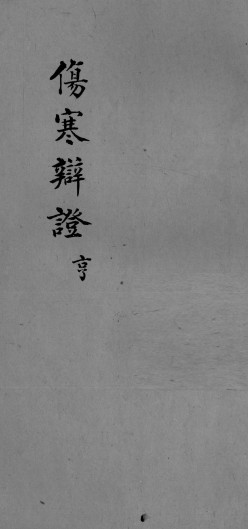 傷寒辯證
亨